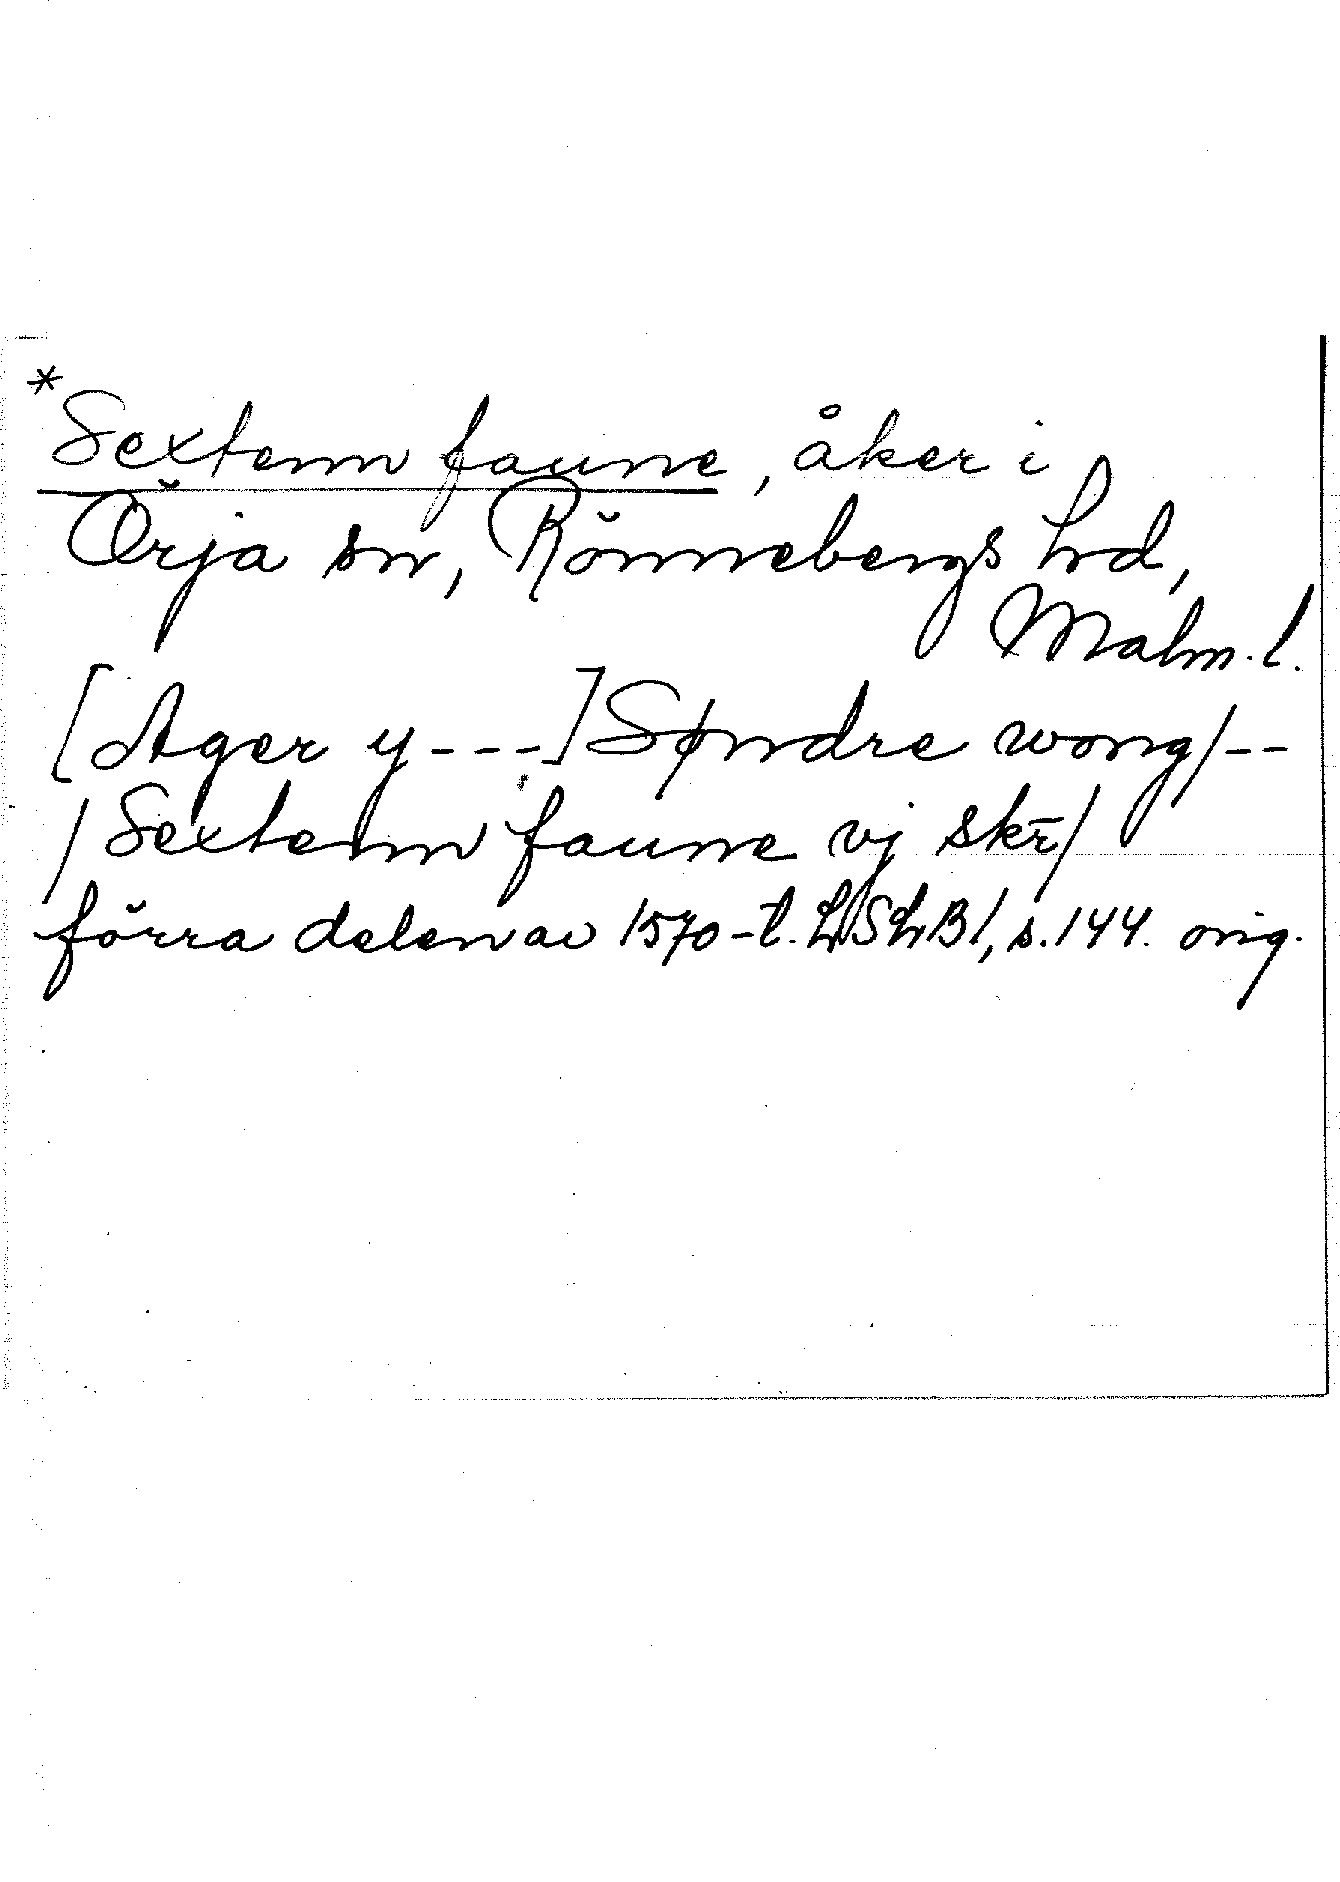 *Sextenn faune, åker i
Örja sn, Rönnebergs hrd,
Malm.l.
[Ager y---] Søndre wong/--
/Sextenn faune vj skr̄/
förra delen av 1570-t. LSLB1, s.144. orig.